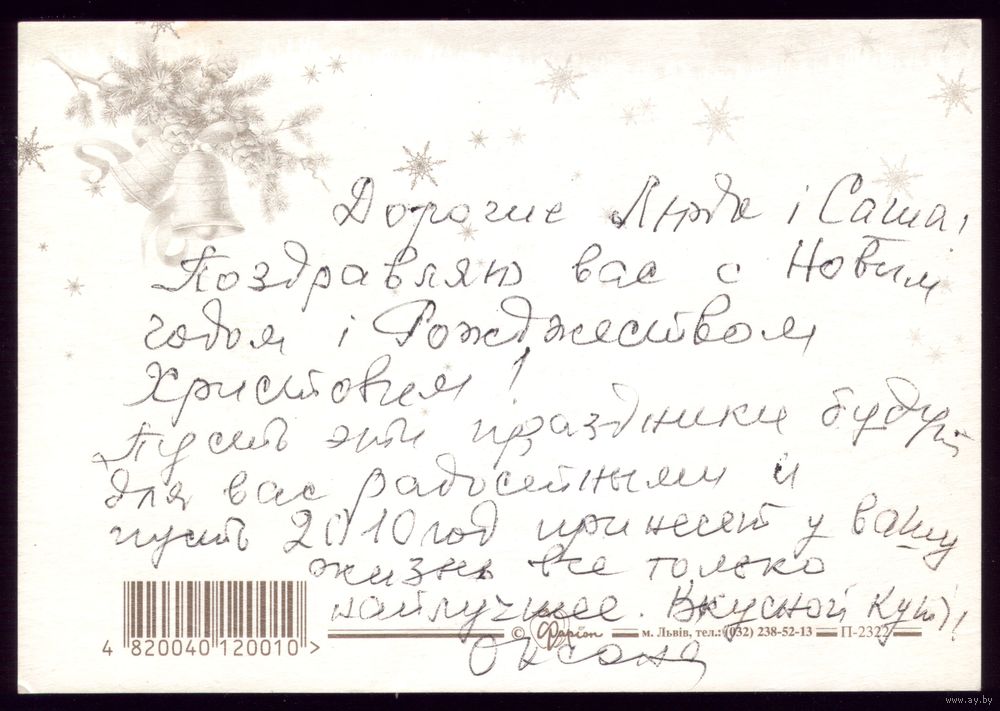 Дорогие Люда і Саша,
Поздравляю вас с Новим
годом і Рожджеством
Христовим!
Пусть эти праздники будут
для вас радостными и
пусть 2010 год принесет у вашу
жизнь все только
найлучшее. Вкусной кутьі!
Оксана
4 820040 120010 >
© Фарїon м. Львів, тел.: (032) 238-52-13 П-2322
www.ay.by